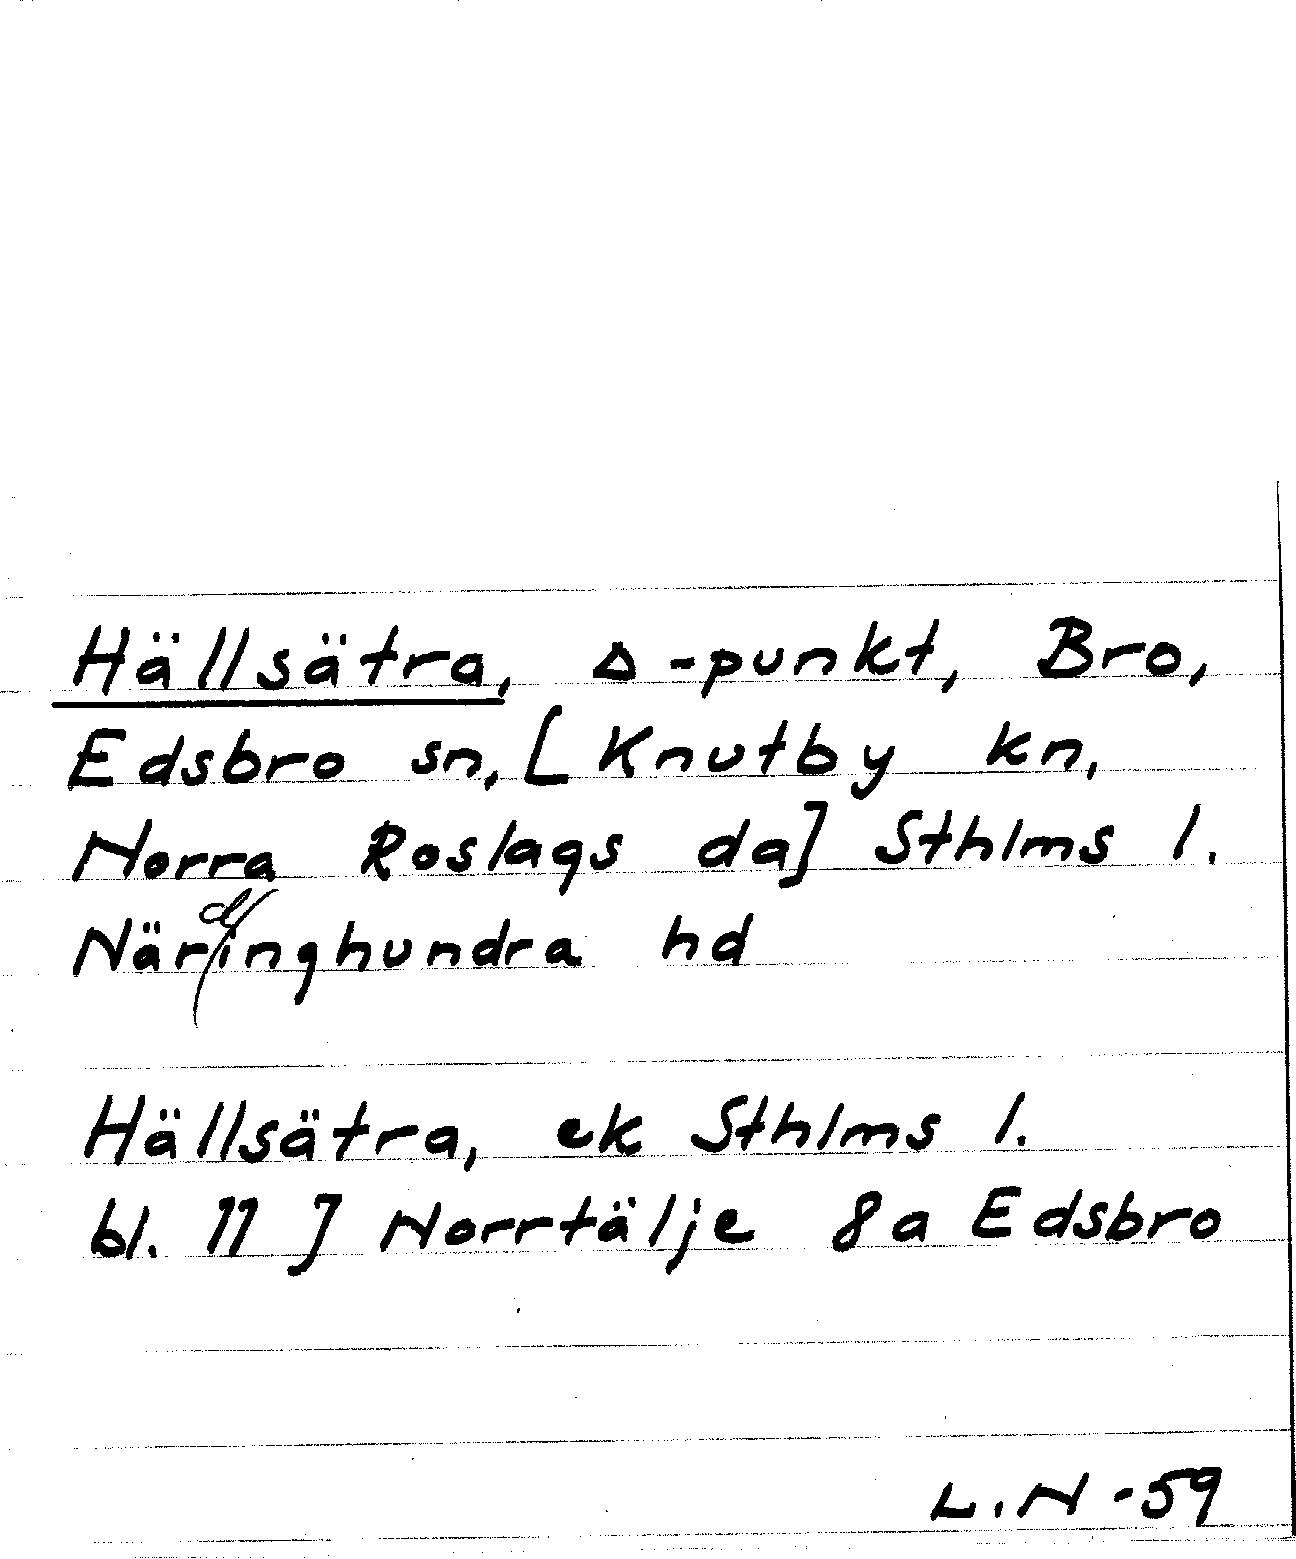 Hällsätra, Δ-punkt, Bro,
Edsbro sn, [Knutby kn,
Norra Roslags da] Sthlms l.
Närdinghundra hd
Hällsätra, ek Sthlms l.
bl. 11 J Norrtälje 8a Edsbro
L.N -59